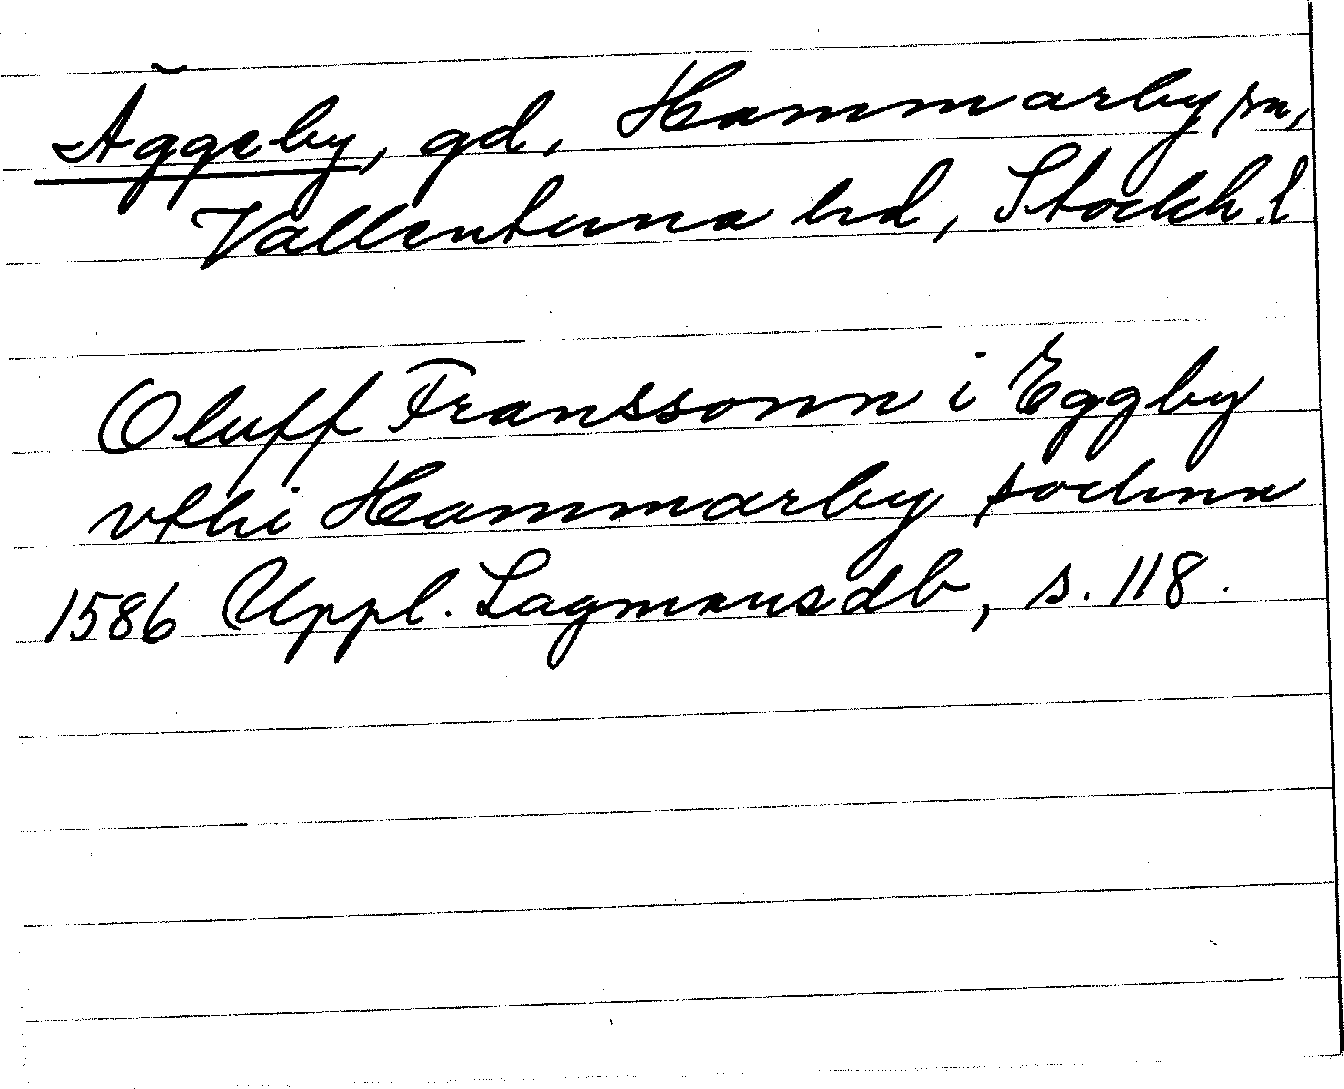 Äggeby, gd, Hammarby sn,
Vallentuna hd, Stockh. l
Oluff Franssonn i Eggby
vthi Hammarby sochnn
1586 Uppl. Lagmansdb, s. 118.